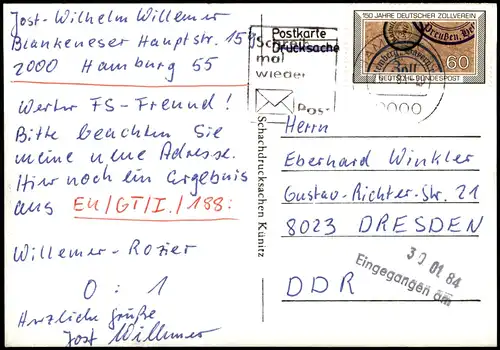 Jost-Wilhelm Willemer
Blankeneser Hauptstr. 153
2000 Hamburg 55
Werter FS-Freund!
Bitte beachten Sie
meine neue Adresse.
Hier noch ein Ergebnis
aus EU/GT/I./188:
Willemer - Rozier
0 : 1
Herzliche Grüße
Jost Willemer
Schachdrucksachen Künitz
Postkarte
Drucksache
Schreib
mal
wieder
Pos-
150 JAHRE DEUTSCHER ZOLLVEREIN
Preußen
60
DEUTSCHE BUNDESPOST
2000
Herrn
Eberhard Winkler
Gustav-Richter-Str. 21
8023 DRESDEN
DDR
30 01 84
Eingegangen am